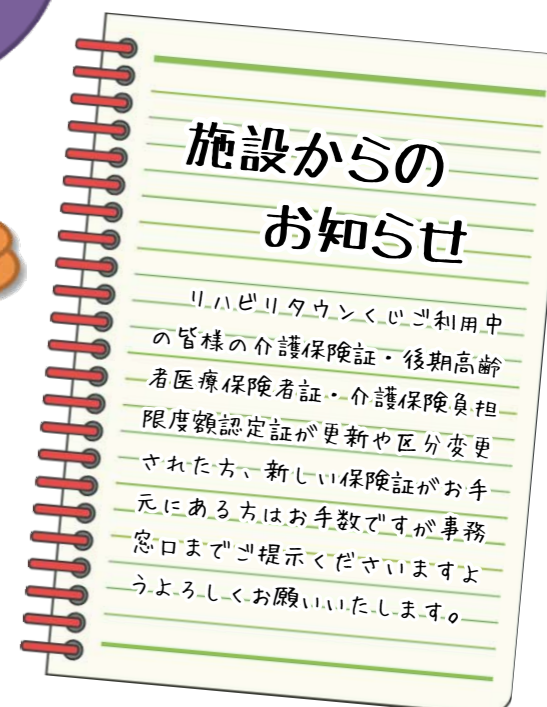 施設からの
お知らせ
リハビリタウンくじご利用中
の皆様の介護保険証・後期高齢
者医療保険者証・介護保険負担
限度額認定証が更新や区分変更
された方、新しい保険証がお手
元にある方はお手数ですが事務
窓口までご提示くださいますよ
うよろしくお願いいたします。